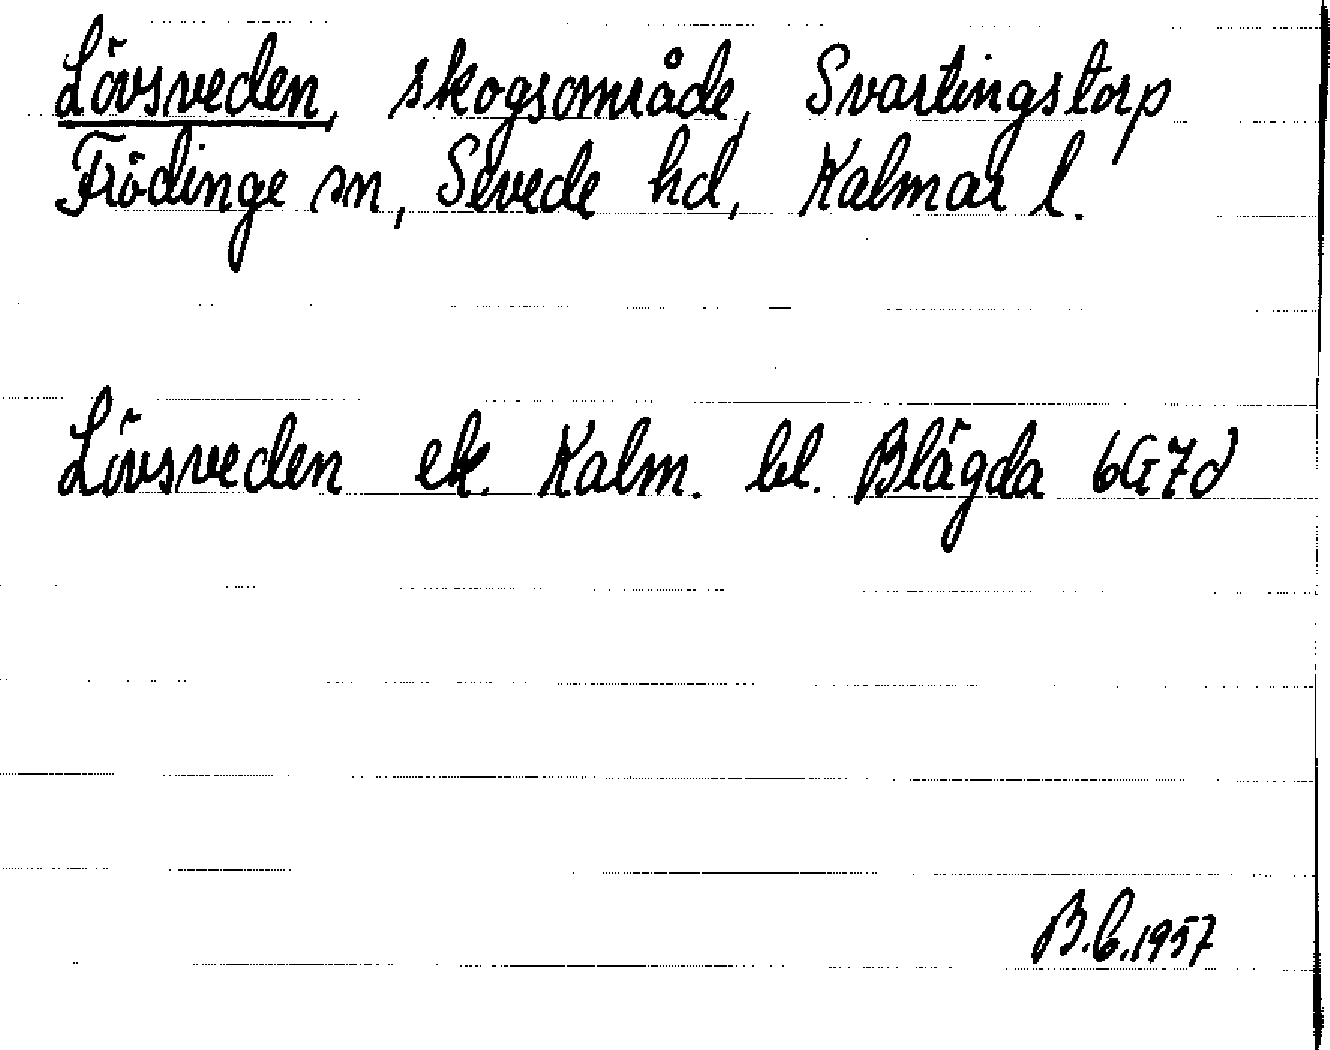 Lövsveden, skogsområde, Svartingstorp
Frödinge sn, Sevede hd, Kalmar l.
Lövsveden ek. Kalm. bl. Blägda 6G7d
B.C.1957